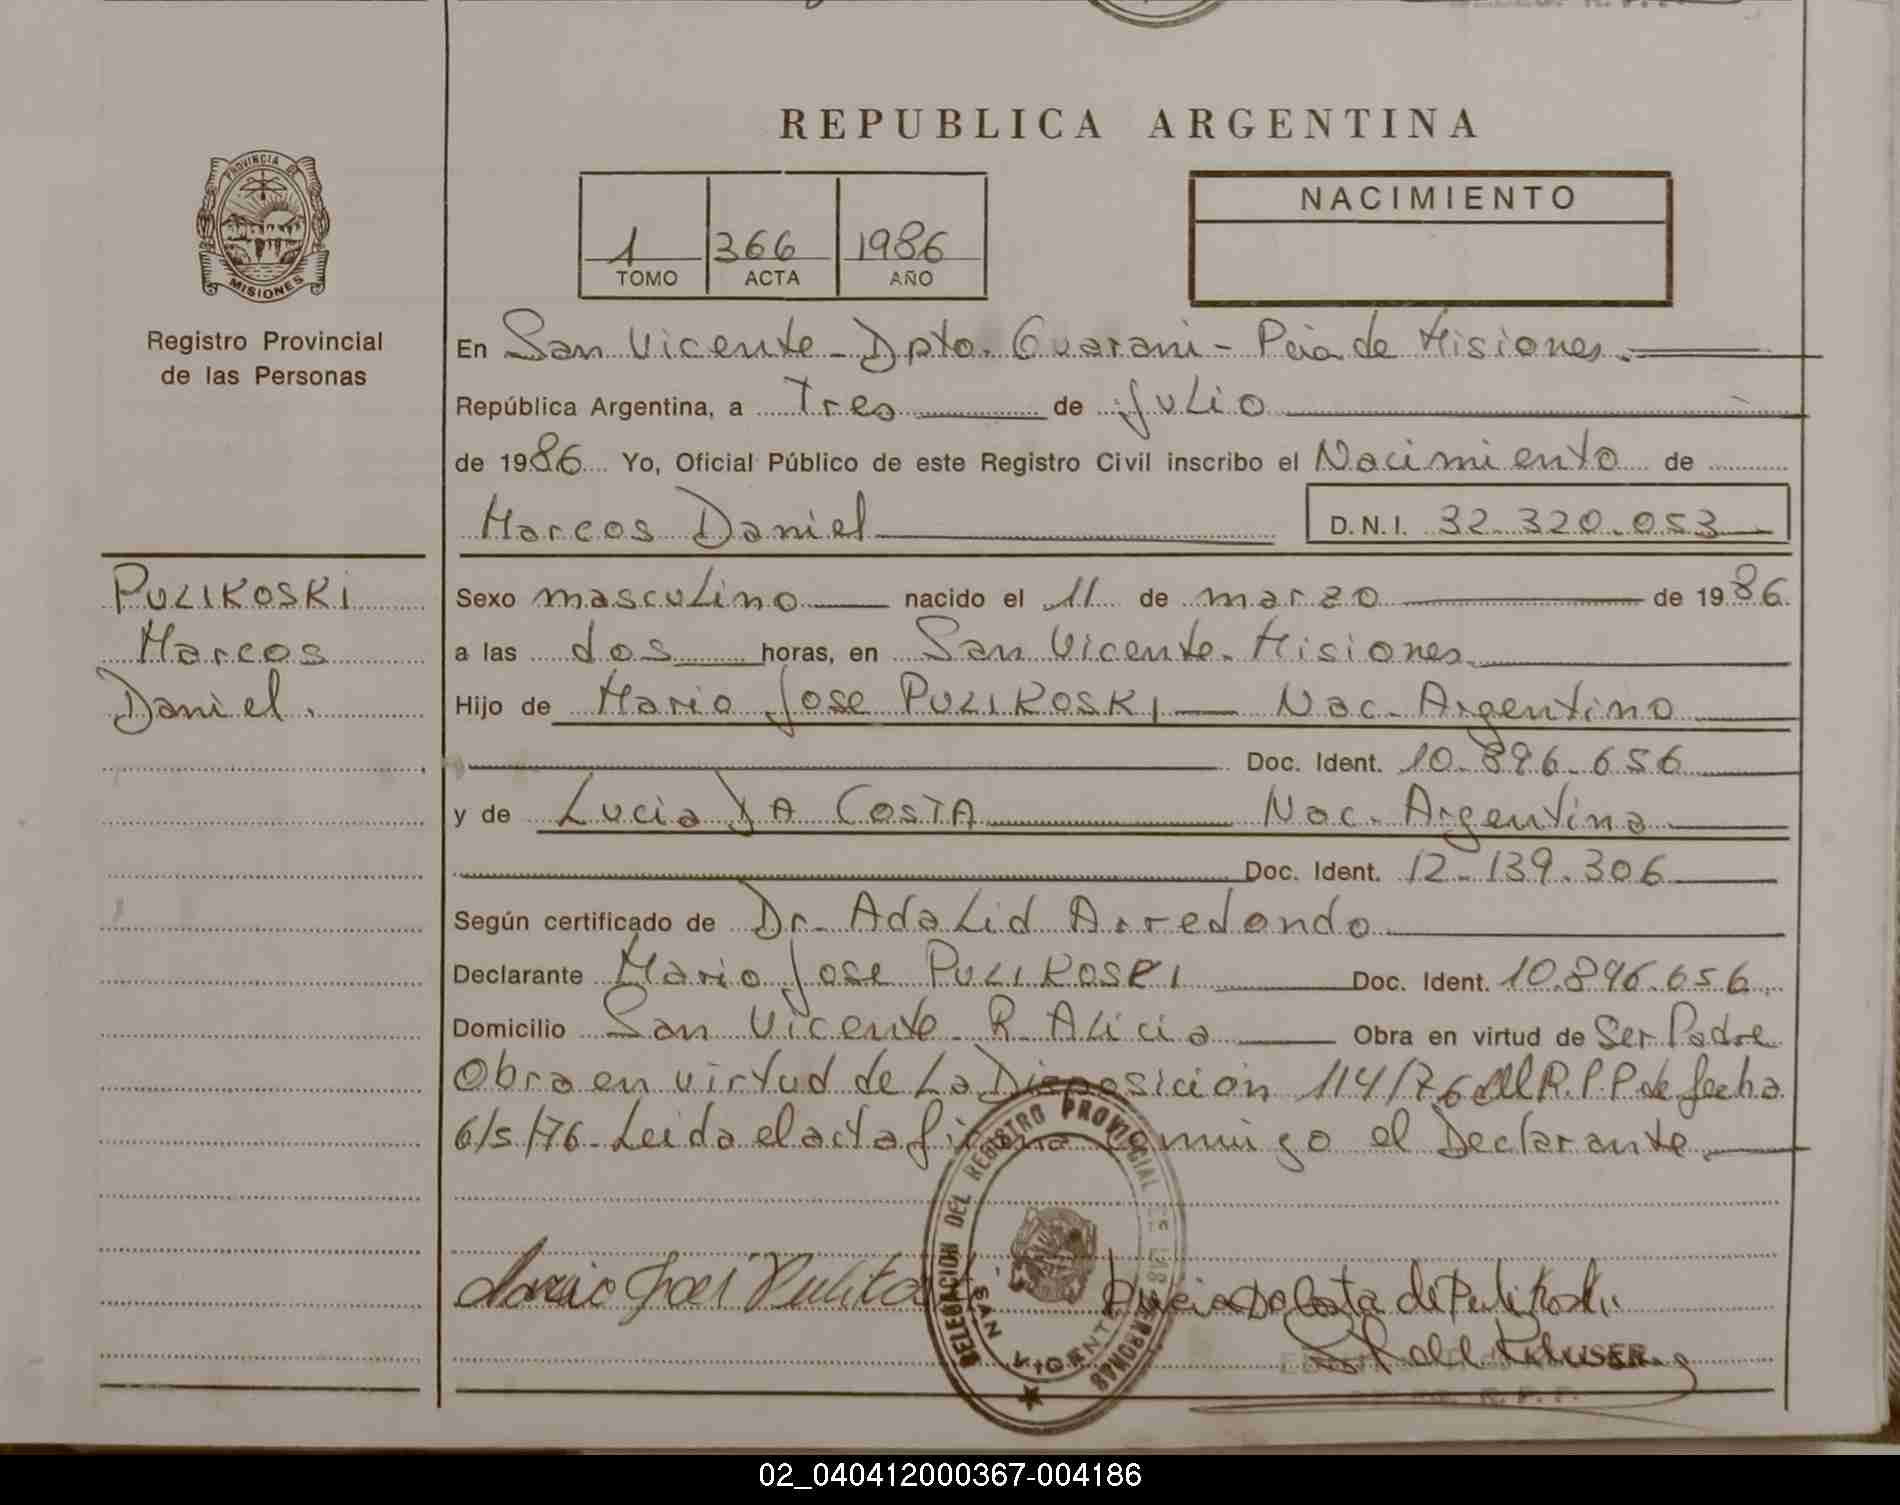 REPUBLICA ARGENTINA
PROVINCIA DE
MISIONES
Registro Provincial
de las Personas
1 366 1986
TOMO ACTA AÑO
NACIMIENTO
En San Vicente - Dpto. Guarani - Pcia de Misiones.
República Argentina, a Tres de Julio
de 1986 Yo, Oficial Público de este Registro Civil inscribo el Nacimiento de
Marcos Daniel D.N.I. 32.320.053
PULIKOSKI
Marcos
Daniel.
Sexo masculino nacido el 11 de marzo de 1986
a las dos horas, en San Vicente - Misiones
Hijo de Mario Jose PULIKOSKI Nac. Argentino
Doc. Ident. 10.896.656
y de Lucia DA COSTA Nac. Argentina
Doc. Ident. 12.139.306
Según certificado de Dr. Adalid Arredondo
Declarante Mario Jose PULIKOSKI Doc. Ident. 10.896.656
Domicilio San Vicente R. Alicia Obra en virtud de Ser Padre
Obra en virtud de La Disposicion 114/76 del R.P.P de fecha
6/5/76 - Leida el acta firma Conmigo el Declarante
DELEGACION DEL REGISTRO PROVINCIAL DE LAS PERSONAS
SAN VICENTE
Mario Jose Pulikoski
Lucia Da Costa de Pulikoski
R. P. P.
02_040412000367-004186